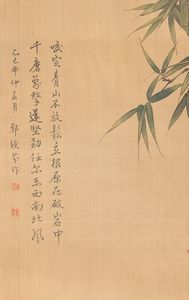 咬定青山不放鬆立根原在破岩中
千磨萬擊還堅勁任尔东西南北風
巳年仲月 鄭芬作